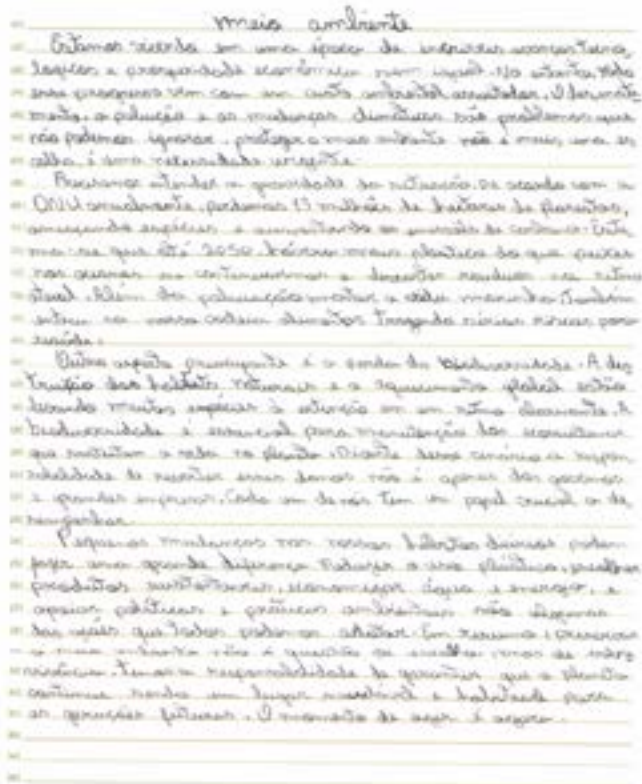 meio ambiente
Estamos vivendo em uma época de incríveis avanços tecno
logicos e prosperidade econômica sem igual. No entanto, todo
esse progresso vem com um custo ambiental assustador. O desmata
mento, a poluição e as mudanças climáticas são problemas que
não podemos ignorar. proteger o meio ambiente não é mais uma es
colha, é uma necessidade urgente.
Precisamos entender a gravidade da situação. De acordo com a
ONU anualmente, perdemos 13 milhões de hectares de florestas,
ameaçando espécies e aumentando as emissões de carbono. Esti
ma-se que até 2050 haverá mais plástico do que peixes
nos oceanos se continuarmos a descartar resíduos no ritmo
atual. Além da poluição matar a vida marinha também
entra na nossa cadeia alimentar trazendo sérios riscos para
saúde.
Outro aspecto preocupante é a perda da biodiversidade. A des
truição dos habitats naturais e o aquecimento global estão
levando muitas espécies à extinção em um ritmo alarmante. A
biodiversidade é essencial para manutenção dos ecossistemas
que sustentam a vida no planeta. Diante desse cenário a respon
sabilidade de reverter esses danos não é apenas dos governos
e grandes empresas. Cada um de nós tem um papel crucial a de
sempenhar.
Pequenas mudanças nos nossos hábitos diários podem
fazer uma grande diferença. Reduzir o uso plástico, escolher
produtos sustentáveis, economizar água e energia, e
apoiar políticas e práticas ambientais são algumas
das ações que todos podemos adotar. Em resumo, preservar
o meio ambiente não é questão de escolha, mas de sobre
vivência. Temos a responsabilidade de garantir que o planeta
continue sendo um lugar saudável e habitável para
as gerações futuras. O momento de agir é agora.